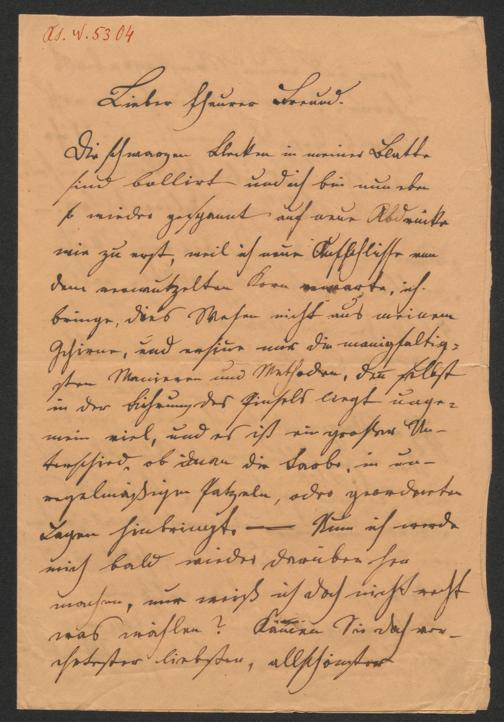 As. N. 5304
Lieber theurer Freund.
Die schwarzen Flecken in meiner Platte
sind pollirt und ich bin nun eben
so wieder gespannt auf neue Abdrücke
wie zu erst, weil ich neue Aufschlüsse von
dem Korn erwarte, ich
bringe, dies Wesen nicht aus meinem
Gehirne, und ersinne mir die manigfaltig=
sten Manieren und Methoden, denn selbst
in der Führung des Pinsels liegt unge=
mein viel, und es ist ein großer Un-
terschied, ob man die Farbe, in un-
regelmäßigen Patzeln, oder geordneten
Lagen hinbringt. — Nun ich werde
mich bald wieder darüber her
machen, nur weiß ich doch nicht recht
was wählen? Kämen Sie doch ver-
ehrtester liebster, allschönster